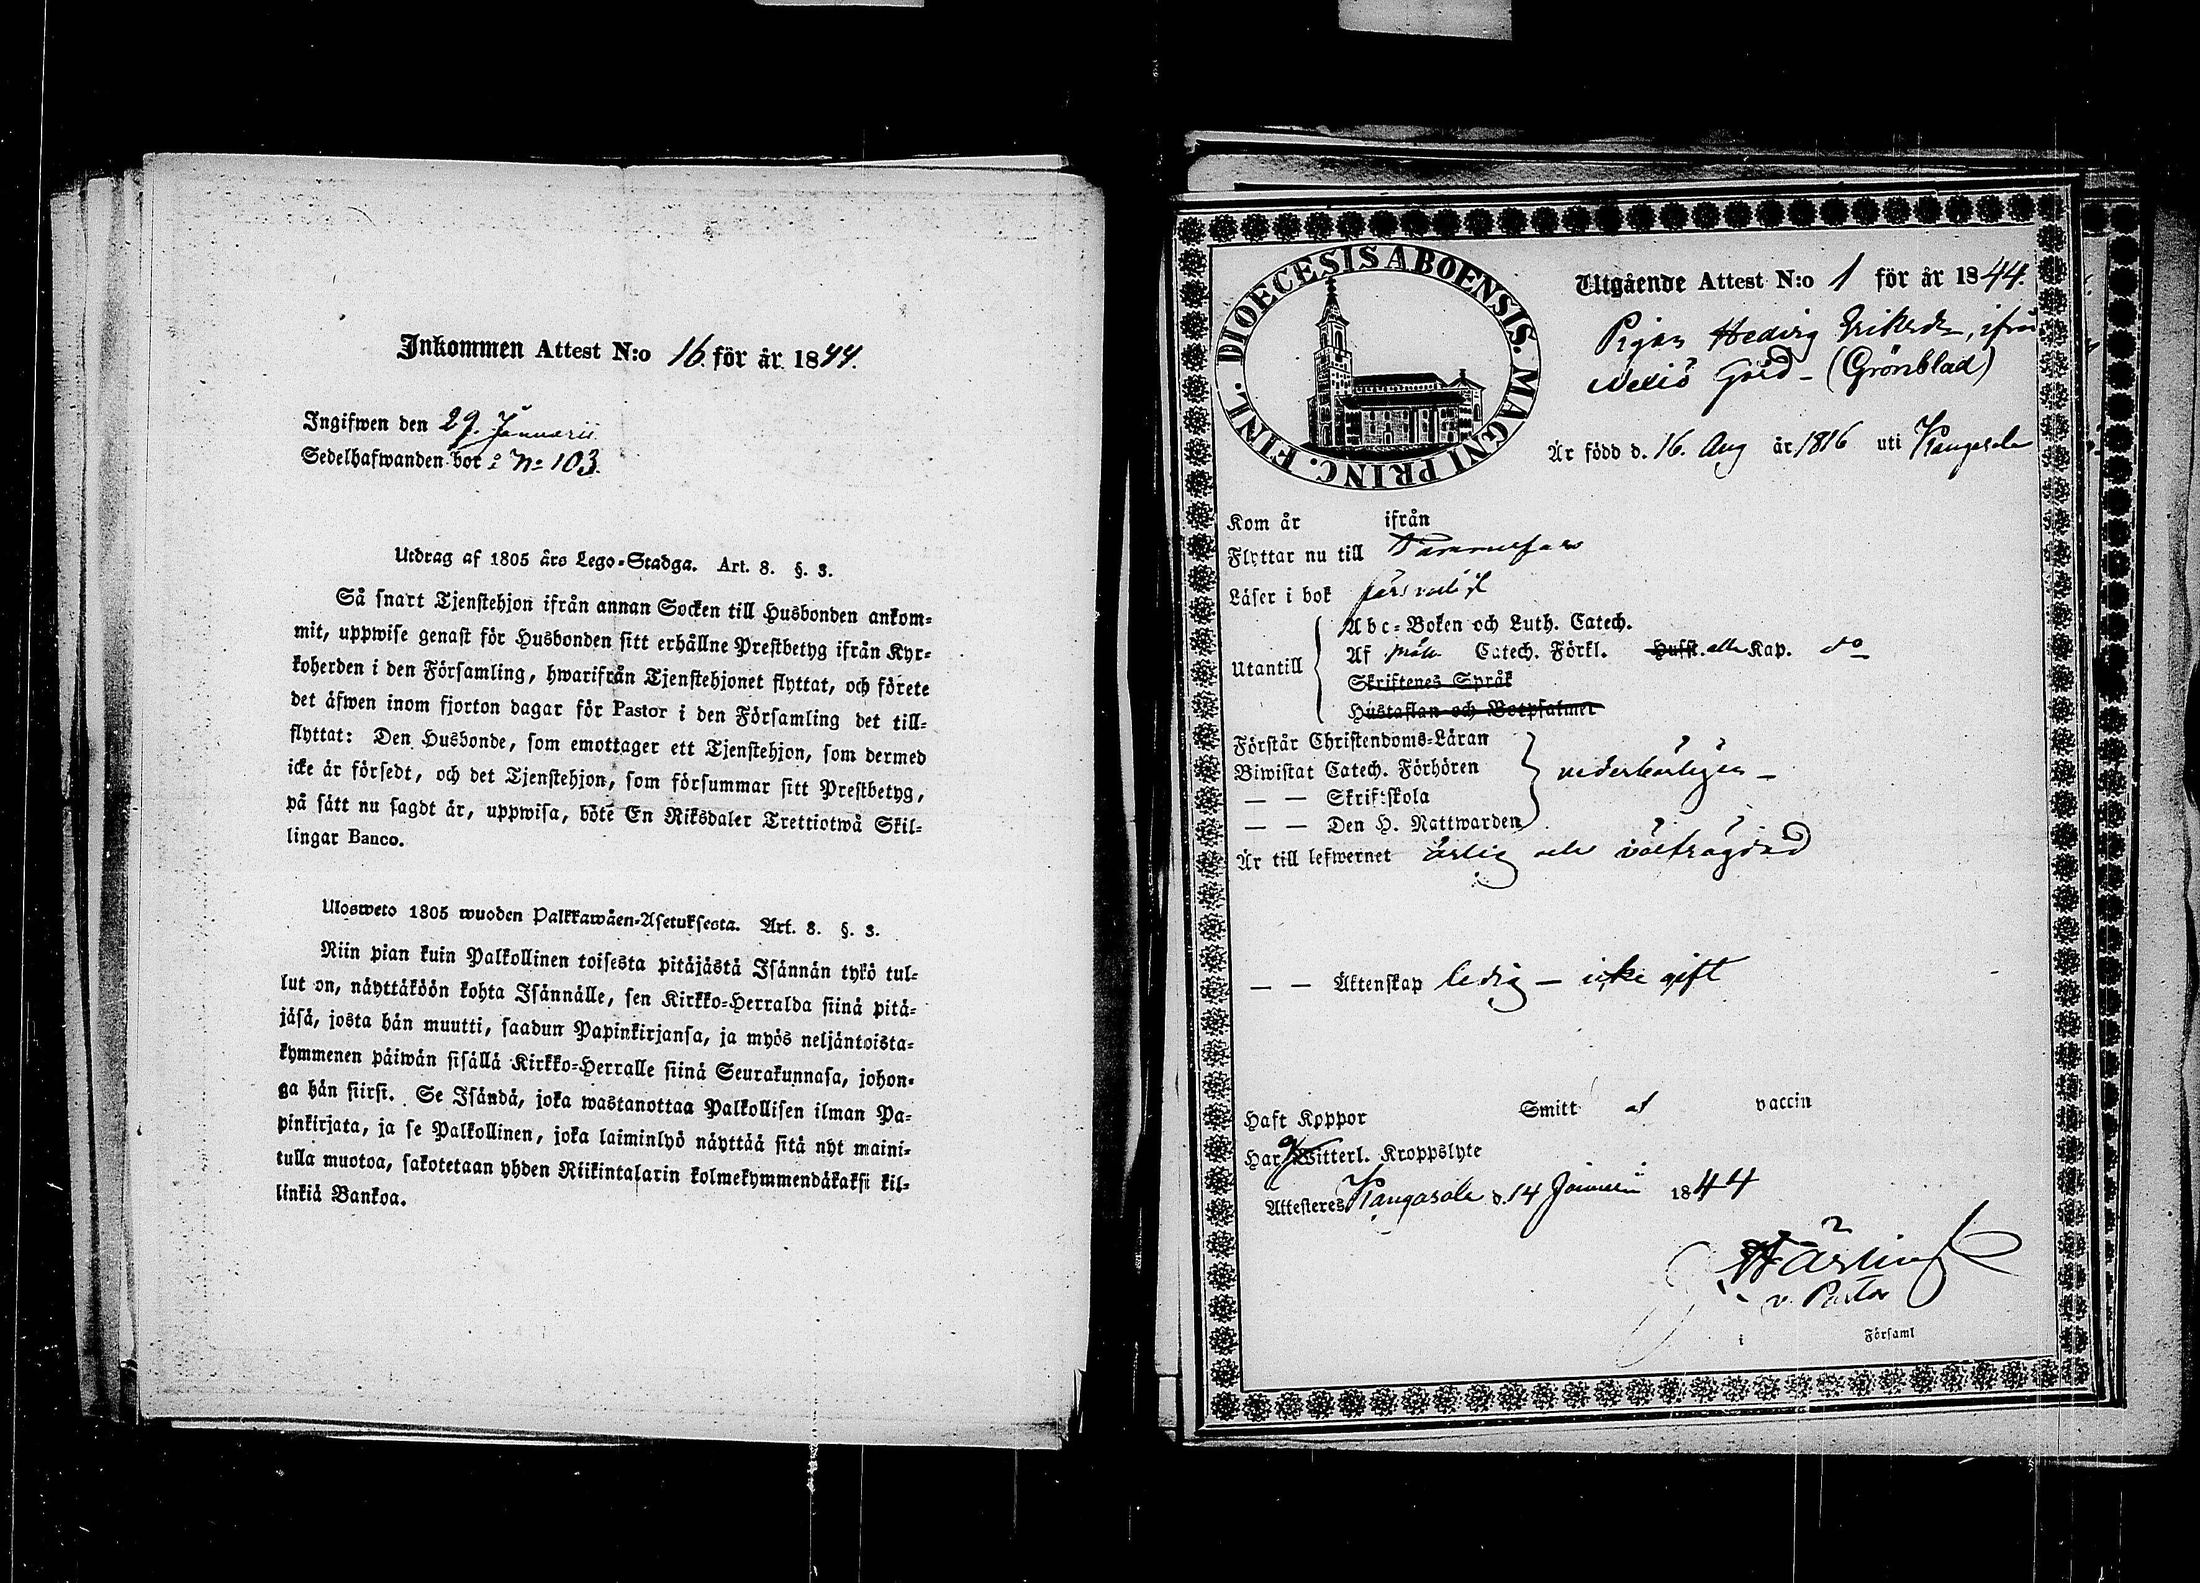 Inkommen Attest N:o 16. för år 1844.
Ingifwen den 29. Januarii
Sedelhafwanden bor i No 103.
Utdrag af 1805 års Lego-Stadga. Art. 8. §. 3.
Så snart Tjenstehjon ifrån annan Socken till Husbonden ankom-
mit, uppwise genast för Husbonden sitt erhållne Prestbetyg ifrån Kyr-
koherden i den Församling, hwarifrån Tjenstehjonet flyttat, och förete
det äfwen inom fjorton dagar för Pastor i den Församling det till-
flyttat: Den Husbonde, som emottager ett Tjenstehjon, som dermed
icke är försedt, och det Tjenstehjon, som försummar sitt Prestbetyg,
på sätt nu sagdt är, uppwisa, böte En Riksdaler Trettiotwå Skil-
lingar Banco.
Ulosweto 1805 wuoden Palkkawäen-Asetuksesta. Art. 8. §. 3.
Niin pian kuin Palkollinen toisesta pitäjästä Isännän tykö tul-
lut on, näyttäköön kohta Isännälle, sen Kirkko-Herralda siinä pitä-
jäsä, josta hän muutti, saadun Papinkirjansa, ja myös neljäntoista-
kymmenen päiwän sisällä Kirkko-Herralle siinä Seurakunnasa, johon-
ga hän siirsi. Se Isändä, joka wastanottaa Palkollisen ilman Pa-
pinkirjata, ja se Palkollinen, joka laiminlyö näyttää sitä nyt maini-
tulla muotoa, sakotetaan yhden Riikintalarin kolmekymmendäkaksi kil-
linkiä Bankoa.
DIOECESIS ABOENSIS. MAGNI PRINC. FINL.
Utgående Attest N:o 1 för år 1844.
Pigan Hedvig Eriksdr, ifrån
Gård - (Grönblad)
Är född d. 16. Aug år 1816 uti Kangasala
Kom år ifrån
Flyttar nu till Tammerfors
Läser i bok försvarligt
Utantill
Abc-Boken och Luth. Catech.
Af Catech. Förkl. Hufst. alla Kap. do
Skriftenes Språk
Hustaflan och Botpsalmer
Förstår Christendoms-Läran
Biwistat Catech. Förhören vederbörligen -
— — Skriftskola
— — Den H. Nattwarden
Är till lefwernet ärlig och välfrägdad
— — Äktenskap ledig - icke gift
Haft Koppor Smitt af vaccin
Har Witterl. Kroppslyte
Attesteres Kangasala d. 14 Januarii 1844
v. Pastor
i Församl